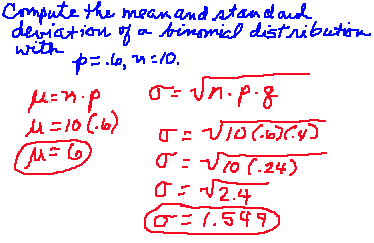 Compute the mean and standard
deviation of a binomial distribution
with
p = .6, n = 10.
μ = n · p
μ = 10 (.6)
μ = 6
σ = √n · p · q
σ = √10 (.6)(.4)
σ = √10 (.24)
σ = √2.4
σ = 1.549